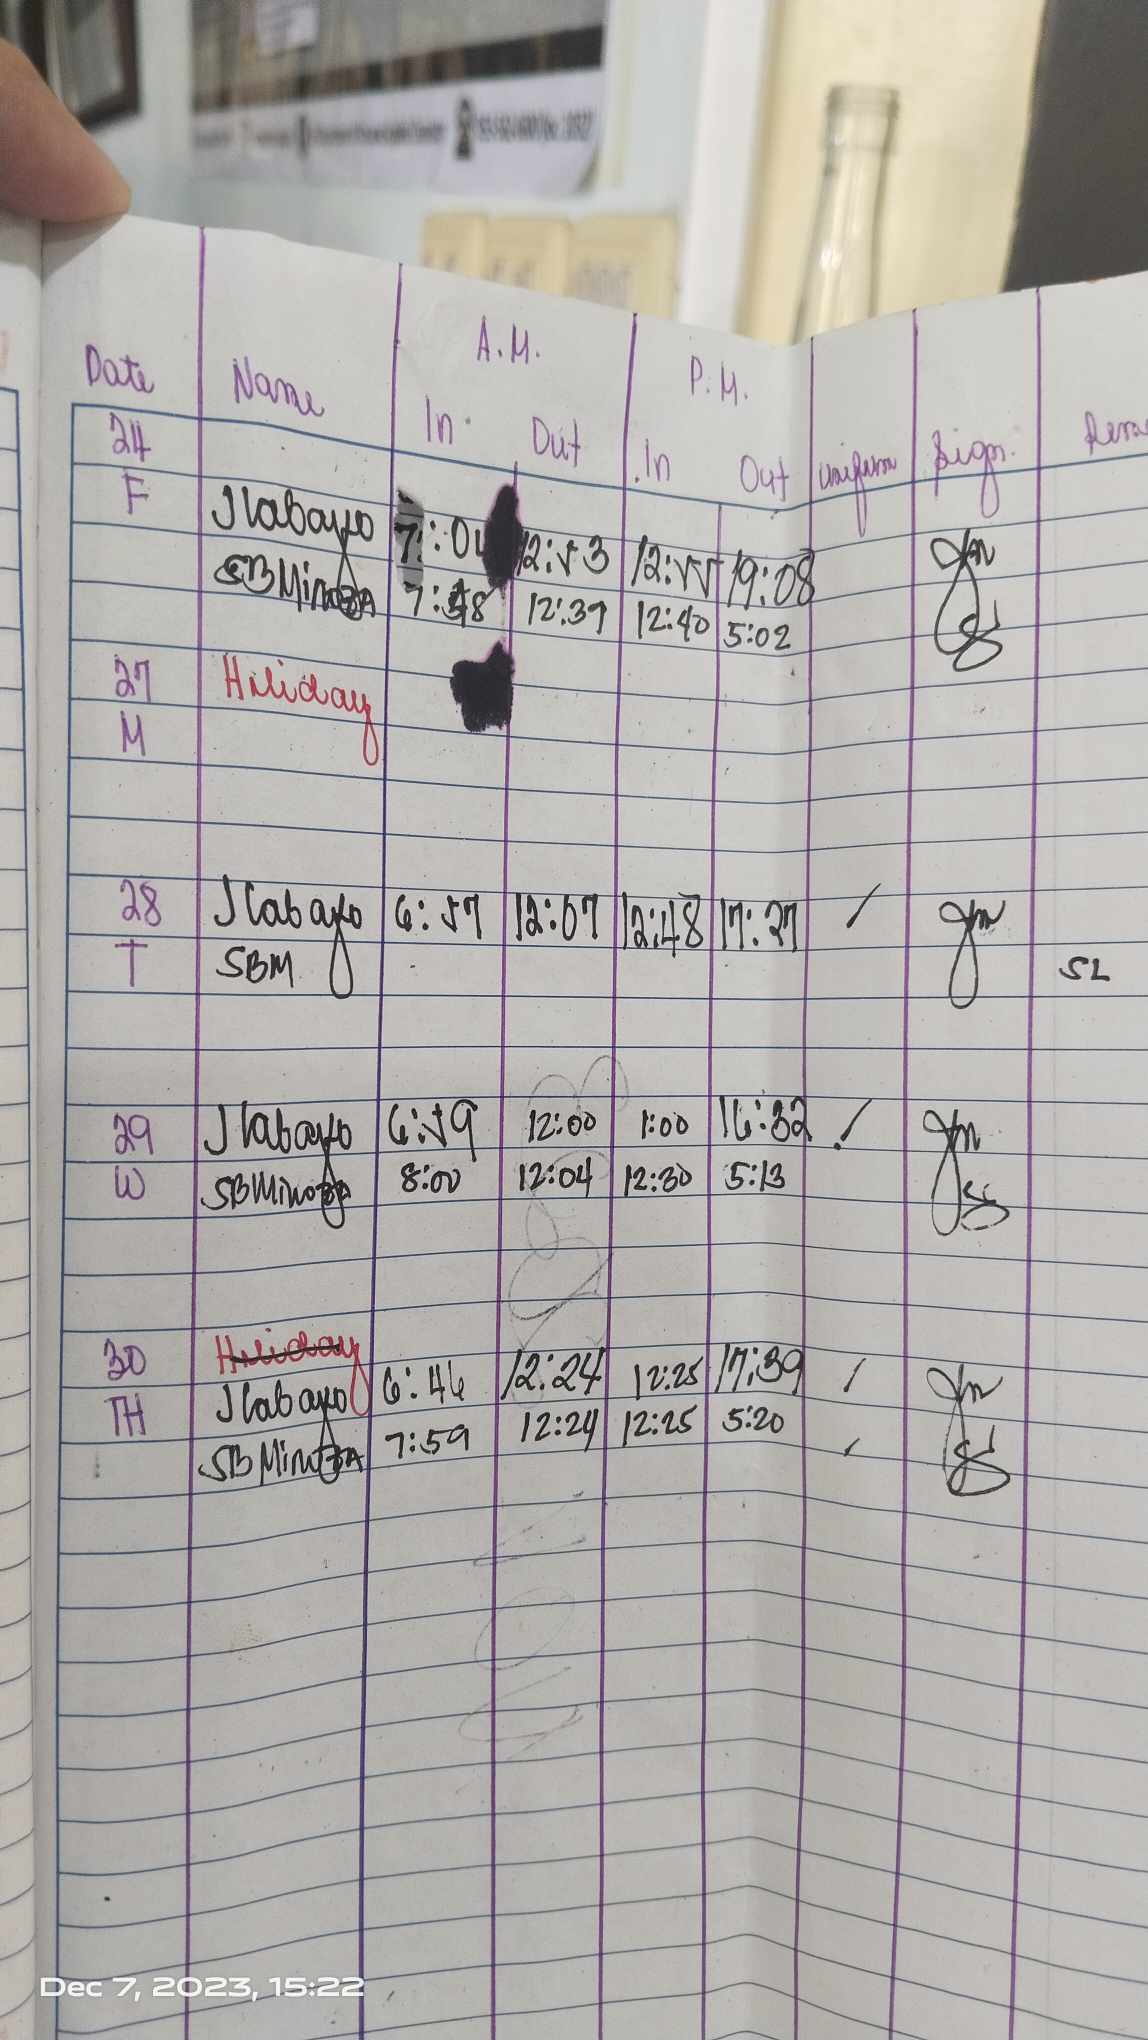 A.M.
P.M.
Date Name In Out In Out Uniform Sign.
24
F
Jlabayo 12:53 12:55 19:08
SBMinoza 12:39 12:40 5:02
27 Holiday
M
28 Jlabayo 6:57 12:07 12:48 17:27 /
T SBM SL
29 Jlabayo 6:59 12:00 1:00 16:32 /
W SBMinoza 8:00 12:04 12:30 5:13
30 Holiday
Jlabayo 6:46 12:24 12:25 17:39 /
TH
SBMinoza 7:59 12:24 12:25 5:20 /
Dec 7, 2023, 15:22